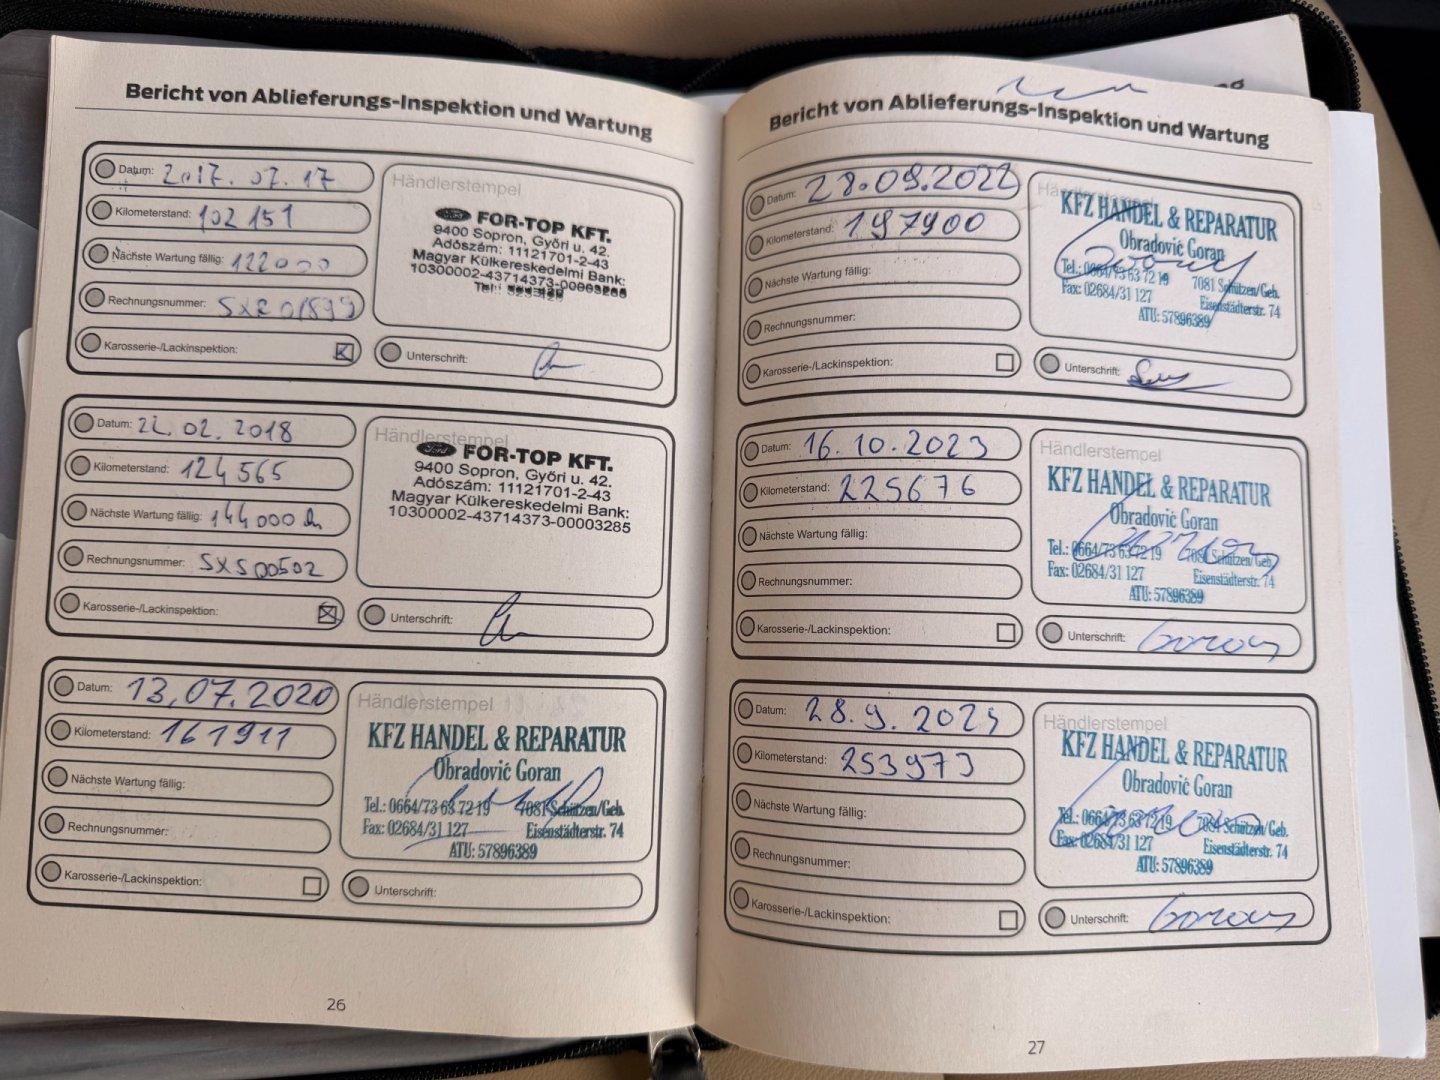 Bericht von Ablieferungs-Inspektion und Wartung
Datum: 2017. 07. 17
Kilometerstand: 102 151
Nächste Wartung fällig: 122000
Rechnungsnummer:
Karosserie-/Lackinspektion:
Händlerstempel
Ford FOR-TOP KFT.
9400 Sopron, Győri u. 42.
Adószám: 11121701-2-43
Magyar Külkereskedelmi Bank:
10300002-43714373-00003285
Tel.:
Unterschrift:
Datum: 22. 02. 2018
Kilometerstand: 124 565
Nächste Wartung fällig: 144000
Rechnungsnummer: SXS00502
Karosserie-/Lackinspektion:
Händlerstempel
Ford FOR-TOP KFT.
9400 Sopron, Győri u. 42.
Adószám: 11121701-2-43
Magyar Külkereskedelmi Bank:
10300002-43714373-00003285
Unterschrift:
Datum: 13.07.2020
Kilometerstand: 161911
Nächste Wartung fällig:
Rechnungsnummer:
Karosserie-/Lackinspektion:
Händlerstempel
KFZ HANDEL & REPARATUR
Obradović Goran
Tel.: 0664/73 63 72 19 7081 Schützen/Geb.
Fax: 02684/31 127 Eisenstädterstr. 74
ATU: 57896389
Unterschrift:
26
Bericht von Ablieferungs-Inspektion und Wartung
Datum: 28.09.2022
Kilometerstand: 197900
Nächste Wartung fällig:
Rechnungsnummer:
Karosserie-/Lackinspektion:
Händlerstempel
KFZ HANDEL & REPARATUR
Obradović Goran
Tel.: 0664/73 63 72 19 7081 Schützen/Geb.
Fax: 02684/31 127 Eisenstädterstr. 74
ATU: 57896389
Unterschrift:
Datum: 16. 10. 2023
Kilometerstand: 225676
Nächste Wartung fällig:
Rechnungsnummer:
Karosserie-/Lackinspektion:
Händlerstempel
KFZ HANDEL & REPARATUR
Obradović Goran
Tel.: 0664/73 63 72 19 7081 Schützen/Geb.
Fax: 02684/31 127 Eisenstädterstr. 74
ATU: 57896389
Unterschrift: Goran
Datum: 28. 9. 2024
Kilometerstand: 253973
Nächste Wartung fällig:
Rechnungsnummer:
Karosserie-/Lackinspektion:
Händlerstempel
KFZ HANDEL & REPARATUR
Obradović Goran
Tel.: 0664/73 63 72 19 7081 Schützen/Geb.
Fax: 02684/31 127 Eisenstädterstr. 74
ATU: 57896389
Unterschrift: Goran
27